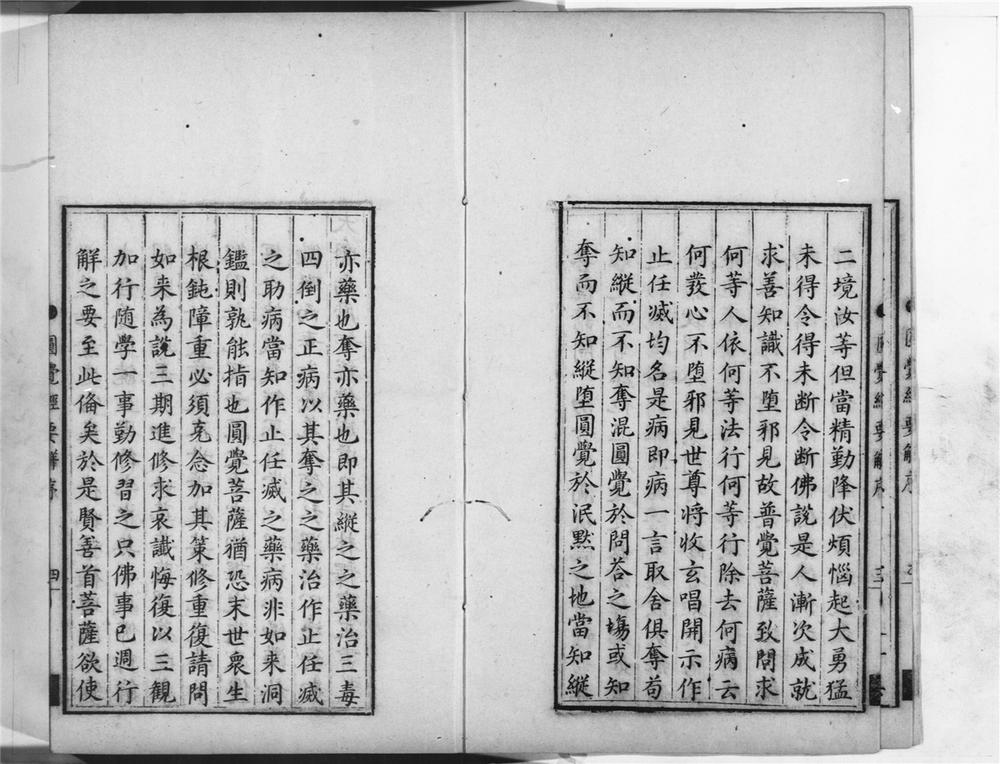 二境汝等但當精勤降伏煩惱起大勇猛
未得令得未断令断佛說是人漸次成就
求善知識不墮邪見故普覺菩薩致問求
何等人依何等法行何等行除去何病云
何發心不墮邪見世尊將收玄唱開示作
止任滅均名是病即病一言取舍俱奪茍
知縱而不知奪混圓覺於問荅之塲或知
奪而不知縱墮圓覺於泯默之地當知縱
亦藥也奪亦藥也即其縱之之藥治三毒
四倒之正病以其奪之之藥治作止任滅
之助病當知作止任滅之藥病非如来洞
鑑則孰能指也圓覺菩薩猶恐末世衆生
根鈍障重必須克念加其策修重復請問
如来為說三期進修求哀讖悔復以三觀
加行随學一事勤修習之只佛事已週行
解之要至此俻矣於是賢善首菩薩欲使
圓覺經要解序
四
圓覺經要解序
三